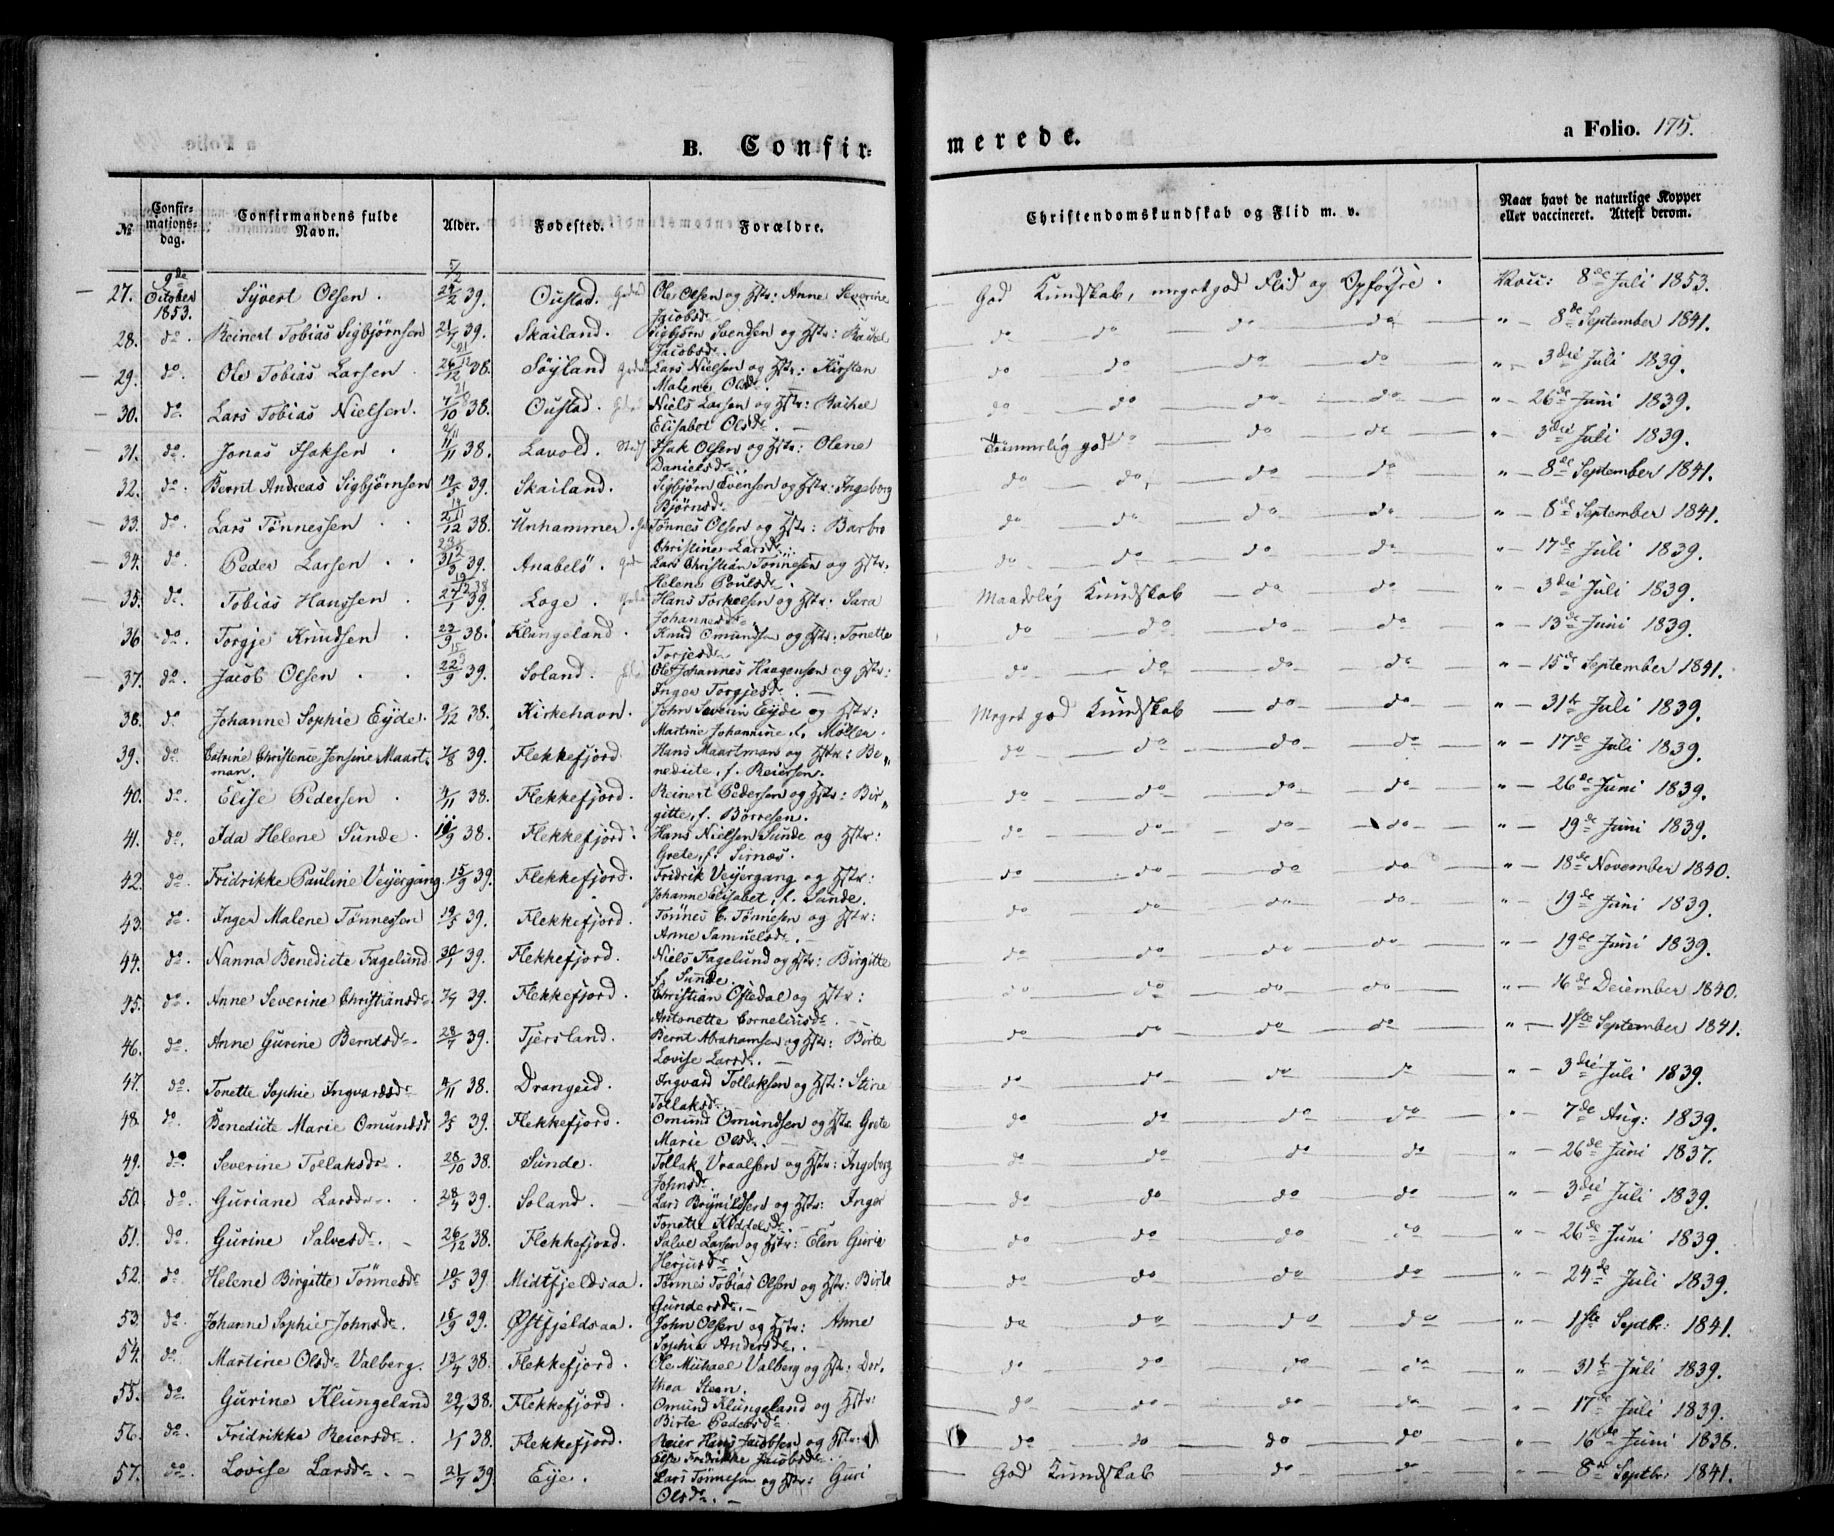 B. Confir-
merede.
a Folio. 175.
№ Confirmationsdag. Confirmandens fulde Navn. Alder. Fødested. Forældre. Christendomskundskab og Flid m. v. Naar havt de naturlige Kopper eller vaccineret. Attest derom.
27. 9de October 1853. Syvert Olsen. 39. Oustad. Ole Olsen og Hstr: Anne Severine Jacobsdr. God Kundskab, meget god Flid og Opførsel. Vacc: 8de Juli 1853.
28. do. Reinert Tobias Sigbjørnsen 39. Skailand. Sigbjørn Svendsen og Hstr: Rachel Jacobsdr. do do do do " — 8de September 1841.
29. do. Ole Tobias Larsen. 26/12 38. Søyland Lars Nielsen og Hstr: Kirsten Malene Olsdr. do do do do " — 3die Juli 1839.
30. do. Lars Tobias Nielsen. 7/10 38. Oustad. Niels Larsen og Hstr: Rachel Elisabet Olsdr. do do do do " — 26de Juni 1839.
31. do. Jonas Isaksen. 11/11 38. Lavold. Isak Olsen og Hstr: Olene Danielsdr. Temmelig god do do do " — 3die Juli 1839.
32. do. Bernt Andreas Sigbjørnsen 19/5 39. Skailand. Sigbjørn Evensen og Hstr: Ingeborg Bjørnsdr. do do do do " — 8de September 1841.
33. do. Lars Tønnessen 38. Unhammer. Tønnes Olsen og Hstr: Barbro Christine Larsdr. do do do do " — 8de September 1841.
34. do. Peder Larsen 31/3 39. Anabelö. Lars Christian Tönnesen og Hstr: Helene Poulsdr. do do do do " — 17de Juli 1839.
35. do. Tobias Hanssen. 27/1 39. Loge. Hans Torkelsen og Hstr: Sara Johannesdr. Maadelig Kundskab do do " — 3die Juli 1839.
36. do. Torgje Knudsen. 23/9 38. Klungeland. Knud Omundsen og Hstr: Tonette Torjesdr. do do do do " — 13de Juni 1839.
37. do. Jacob Olsen. 22/9 39. Soland. Ole Johannes Haagensen og Hstr: Inger Torgjesdr. do do do do " — 15de September 1841.
38. do Johanne Sophie Eyde. 9/12 38. Kirkehavn. John Severin Eyde og Hstr: Martine Johannine f. Möller. Meget god Kundskab do do " — 31te Juli 1839.
39. do. Catrine Christence Jensine Maartman. 7/8 39. Flekkefjord Hans Maartman og Hstr: Benedicte, f. Reiersen. do do do do " — 17de Juli 1839.
40. do. Elise Pedersen. 4/11 38. Flekkefjord. Reinert Pedersen og Hstr: Birgitte, f. Børresen. do do do do " — 26de Juni 1839.
41. do. Ida Helene Sunde. 38. Flekkefjord. Hans Nielsen Sunde og Hstr: Grete, f. Sirnæs. do do do do " — 19de Juni 1839.
42. do. Fridrikke Pauline Veyergang. 15/9 39. Flekkefjord. Fridrik Veyergang og Hstr: Johanne Elisabet, f. Sunde. do do do do " — 18de November 1840.
43. do. Inger Malene Tønnessen 19/5 39. Flekkefjord. Tönnes C. Tönnesen og Hstr: Anne Samuelsdr. do do do do " — 19de Juni 1839.
44. do. Nanna Benedicte Fagelund. 30/1 39. Flekkefjord. Niels Fagelund og Hstr: Birgitte f. Sunde. do do do do " — 19de Juni 1839.
45. do. Anne Severine Christiansdr. 39. Flekkefjord. Christian Ostedal og Hstr: Antonette Corneliusdr. do do do do " — 16de December 1840.
46. do. Anne Gurine Berntsdr. 39. Tjersland. Bernt Abrahamsen og Hstr: Birte Lovise Larsdr. do do do do " — 1ste September 1841.
47. do. Tonette Sophie Ingvardsdr. 4/11 38. Drangeid. Ingvard Tollaksen og Hstr: Stine Tollaksdr. do do do do " — 3die Juli 1839.
48. do. Benedicte Marie Omundsdr 9/5 39. Flekkefjord. Omund Omundsen og Hstr. Grete Marie Olsdr. do do do do " — 7de Aug: 1839.
49. do. Severine Tollaksdr. 28/10 38. Sunde. Tollak Vraalsen og Hstr: Ingeborg Johnsdr. do do do do " — 26de Juni 1837.
50. do. Guriane Larsdr. 39. Soland. Lars Brynildsen og Hstr: Inger Tonette Kiddelsdr. do do do do " — 3die Juli 1839.
51. do. Gurine Salvesdr. 26/12 38. Flekkefjord. Salve Larsen og Hstr: Elen Gurie Herjusdr. do do do do " — 26de Juni 1839.
52. do Helene Birgitte Tönnesdr 19/5 39. Midtfjeldsaa. Tønnes Tobias Olsen og Hstr: Birte Gundersdr. do do do do " — 24de Juli 1839.
53. do. Johanne Sophie Johnsdr. 15/9 39. Østfjeldsaa. John Olsen og Hstr: Anne Sophia Andersdr. do do do do " — 1ste Septbr: 1841.
54. do. Martine Olsdr Valberg. 13/4 38. Flekkefjord. Ole Michael Valberg og Hstr: Dorthea Steen. do do do do " 31te Juli 1839.
55. do Gurine Klungeland 38. Flekkefjord. Omund Klungeland og Hstr Birte Pedersdr. do do do do " — 17de Juli 1839.
56. do. Fridrikke Reiersdr. 1/1 38. Flekkefjord. Reier Hans Jacobsen og Hstr: Else Fridrikke Jacobsdr. do do do do " — 16de Juni 1838.
57. do. Lovise Larsdr. 39. Eye. Lars Tönnesen og Hstr: Guri Olsdr. God Kundskab do do " — 8de Septbr: 1841.